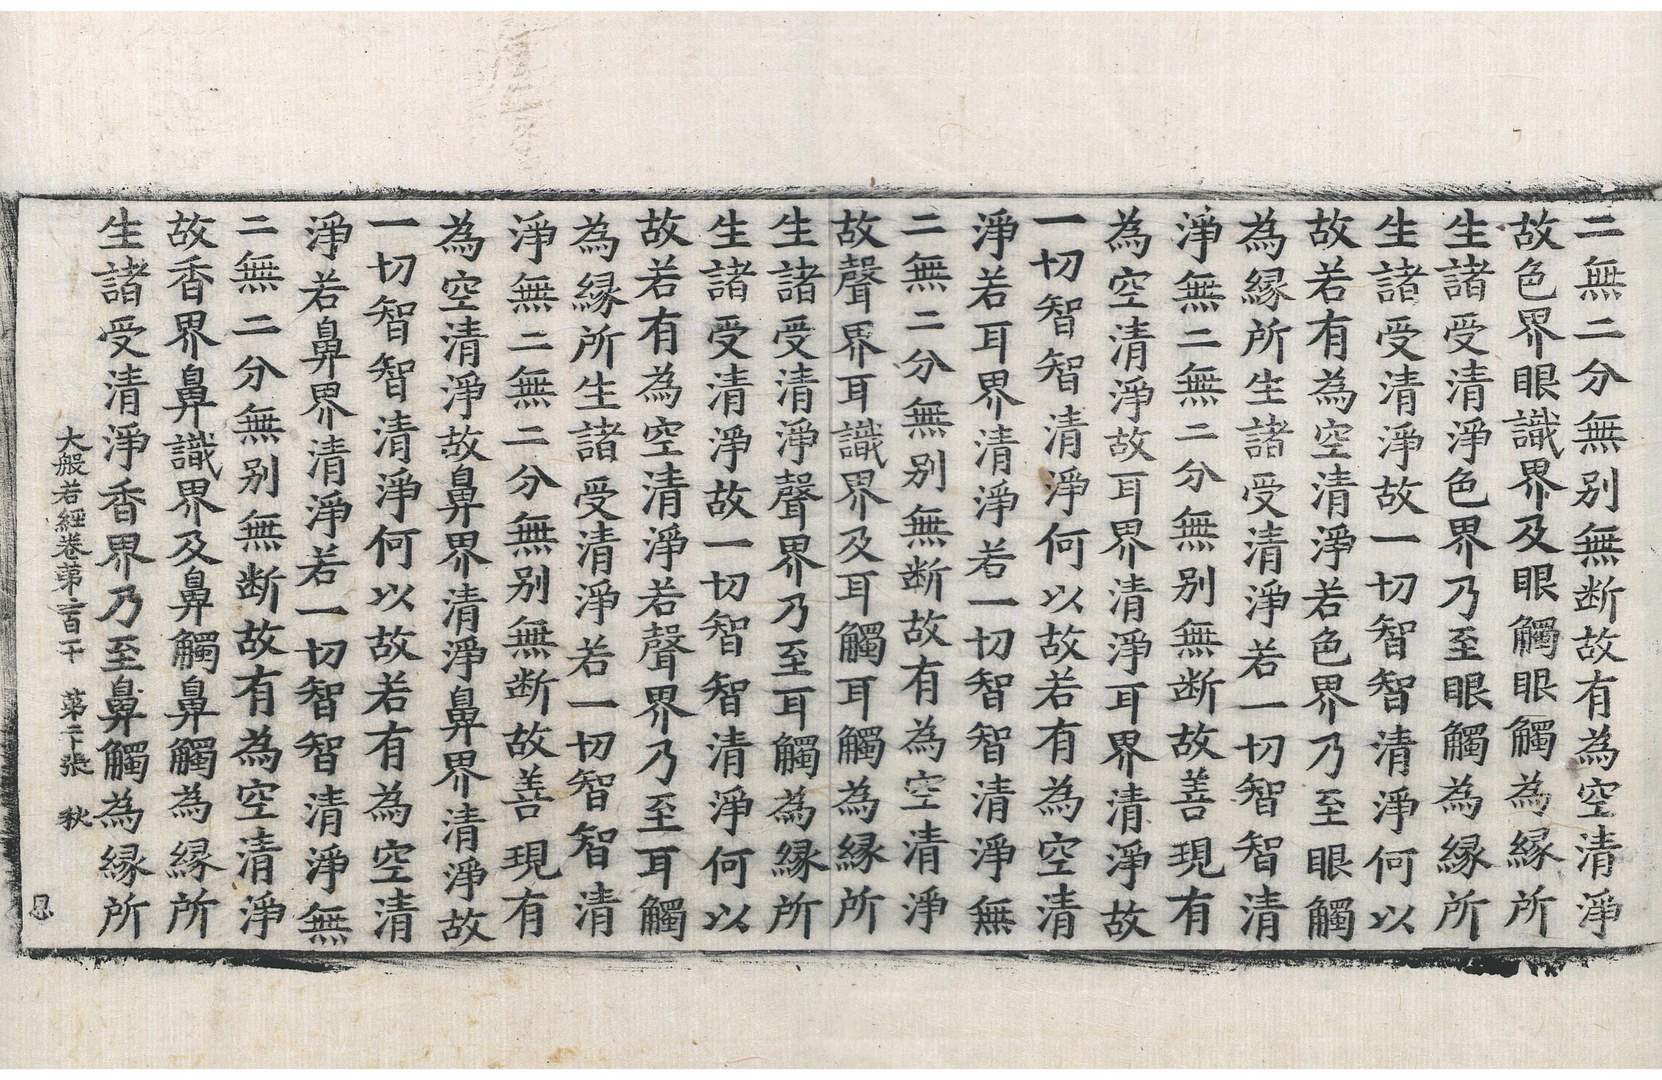 二無二分無别無断故有為空清淨
故色界眼識界及眼觸眼觸為縁所
生諸受清淨色界乃至眼觸為縁所
生諸受清淨故一切智智清淨何以
故若有為空清淨若色界乃至眼觸
為縁所生諸受清淨若一切智智清
淨無二無二分無别無断故善現有
為空清淨故耳界清淨耳界清淨故
一切智智清淨何以故若有為空清
淨若耳界清淨若一切智智清淨無
二無二分無别無断故有為空清淨
故聲界耳識界及耳觸耳觸為縁所
生諸受清淨聲界乃至耳觸為縁所
生諸受清淨故一切智智清淨何以
故若有為空清淨若聲界乃至耳觸
為縁所生諸受清淨若一切智智清
淨無二無二分無别無断故善現有
為空清淨故鼻界清淨鼻界清淨故
一切智智清淨何以故若有為空清
淨若鼻界清淨若一切智智清淨無
二無二分無别無断故有為空清淨
故香界鼻識界及鼻觸鼻觸為縁所
生諸受清淨香界乃至鼻觸為縁所
大般若經卷苐二百一十 苐二十張 秋